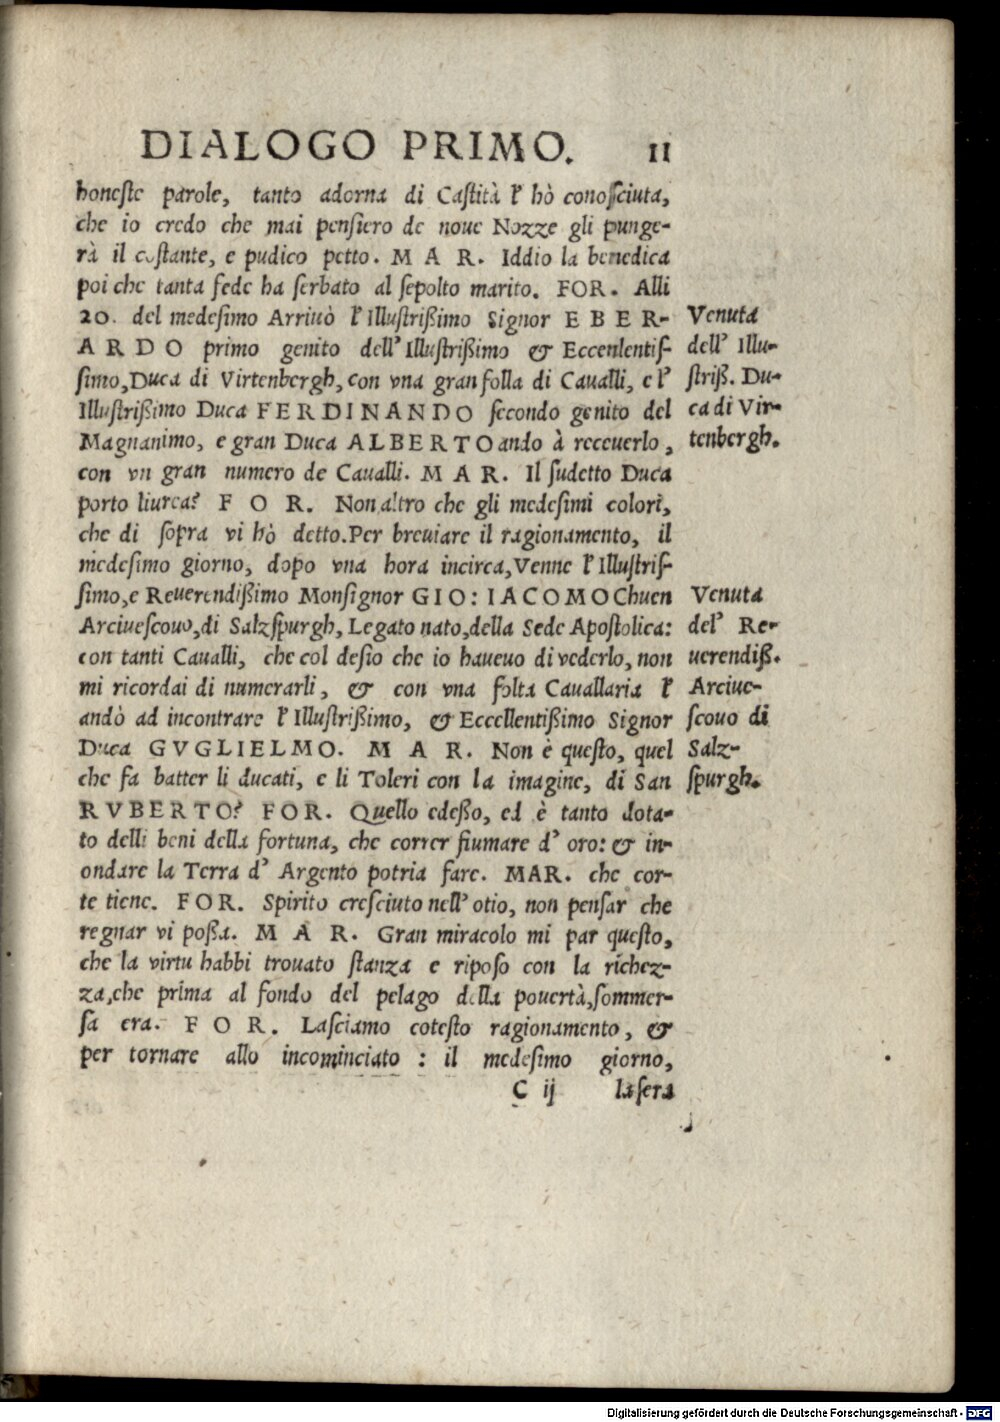 DIALOGO PRIMO. 11
honeste parole, tanto adorna di Castità l' hò conosciuta,
che io credo che mai pensiero de noue Nozze gli punge-
rà il costante, e pudico petto. M A R. Iddio la benedica
poi che tanta fede ha serbato al sepolto marito. FOR. Alli
20. del medesimo Arriuò l' Illustrißimo Signor E B E R-
A R D O primo genito dell' Illustrißimo & Eccenlentis-
simo, Duca di Virtenbergh, con vna gran folla di Caualli, e l'
Illustrißimo Duca FERDINANDO secondo genito del
Magnanimo, e gran Duca ALBERTO ando à receuerlo,
con vn gran numero de Caualli. M A R. Il sudetto Duca
porto liurea? F O R. Non altro che gli medesimi colori,
che di sopra vi hò detto. Per breuiare il ragionamento, il
medesimo giorno, dopo vna hora incirca, Venne l' Illustris-
simo, e Reuerendißimo Monsignor GIO: IACOMO Chuen
Arciuescouo, di Salzspurgh, Legato nato, della Sede Apostolica:
con tanti Caualli, che col desio che io haueuo di vederlo, non
mi ricordai di numerarli, & con vna folta Cauallaria l'
andò ad incontrare l' Illustrißimo, & Eccellentißimo Signor
Duca GVGLIELMO. M A R. Non è questo, quel
che fa batter li ducati, e li Toleri con la imagine, di San
RVBERTO? FOR. Quello edeßo, ed è tanto dota-
to delli beni della fortuna, che correr fiumare d' oro: & in-
ondare la Terra d' Argento potria fare. MAR. che cor-
te tiene. FOR. Spirito cresciuto nell' otio, non pensar che
regnar vi poßa. M A R. Gran miracolo mi par questo,
che la virtu habbi trouato stanza e riposo con la richez-
za, che prima al fondo del pelago della pouertà, sommer-
sa era. F O R. Lasciamo cotesto ragionamento, &
per tornare allo incominciato : il medesimo giorno,
C ij la sera
Venuta
dell' Illu-
striß. Du-
ca di Vir-
tenbergh.
Venuta
del' Re-
uerendiß.
Arciue-
scouo di
Salz-
spurgh.
Digitalisierung gefördert durch die Deutsche Forschungsgemeinschaft - DFG